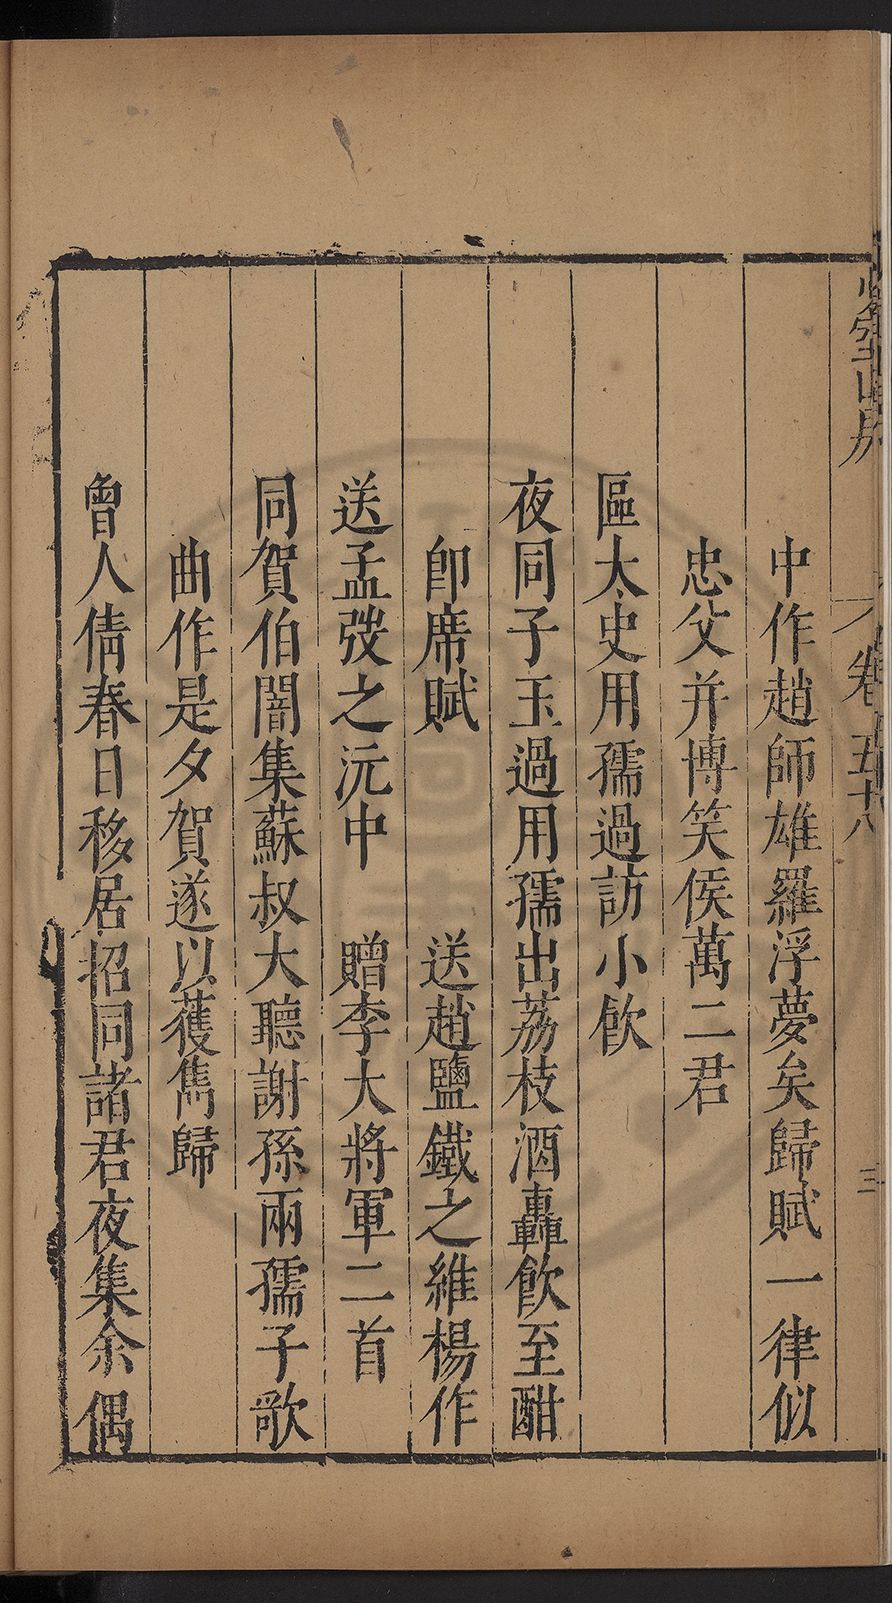 中作趙師雄羅浮夢矣歸賦一律似
忠父并博笑侯萬二君
區太史用孺過訪小飲
夜同子玉過用孺出荔枝酒轟飲至酣
即席賦　送趙鹽鐵之維楊作
送孟弢之沅中　贈李大將軍二首
同賀伯闇集蘇叔大聽謝孫兩孺子歌
曲作是夕賀遂以獲雋歸
曾人倩春日移居招同諸君夜集余偶
卷五十八
三